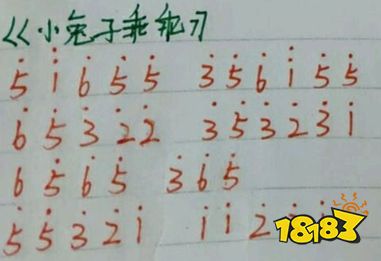 《小兔子乖乖》
5̇ 1̇ 6̇ 5̇ 5̇ 3̇ 5̇ 6̇ 1̇ 5̇ 5̇
6̇ 5̇ 3̇ 2̇ 2̇ 3̇ 5̇ 3̇ 2̇ 3̇ 1̇
6̇ 5̇ 6̇ 5̇ 3̇ 6̇ 5̇
5̇ 5̇ 3̇ 2̇ 1̇ 1̇ 1̇ 2̇
18183